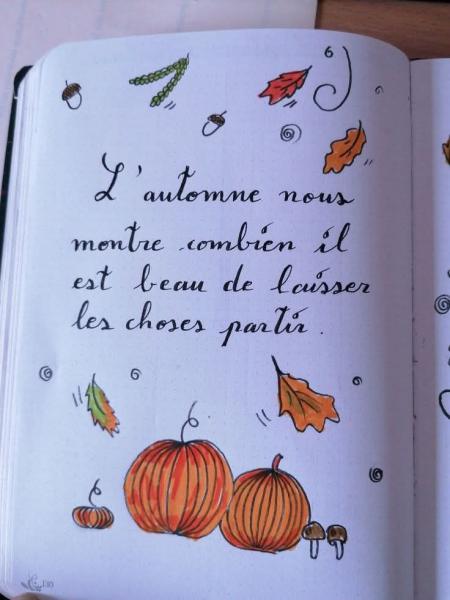 L'automne nous
montre combien il
est beau de laisser
les choses partir.